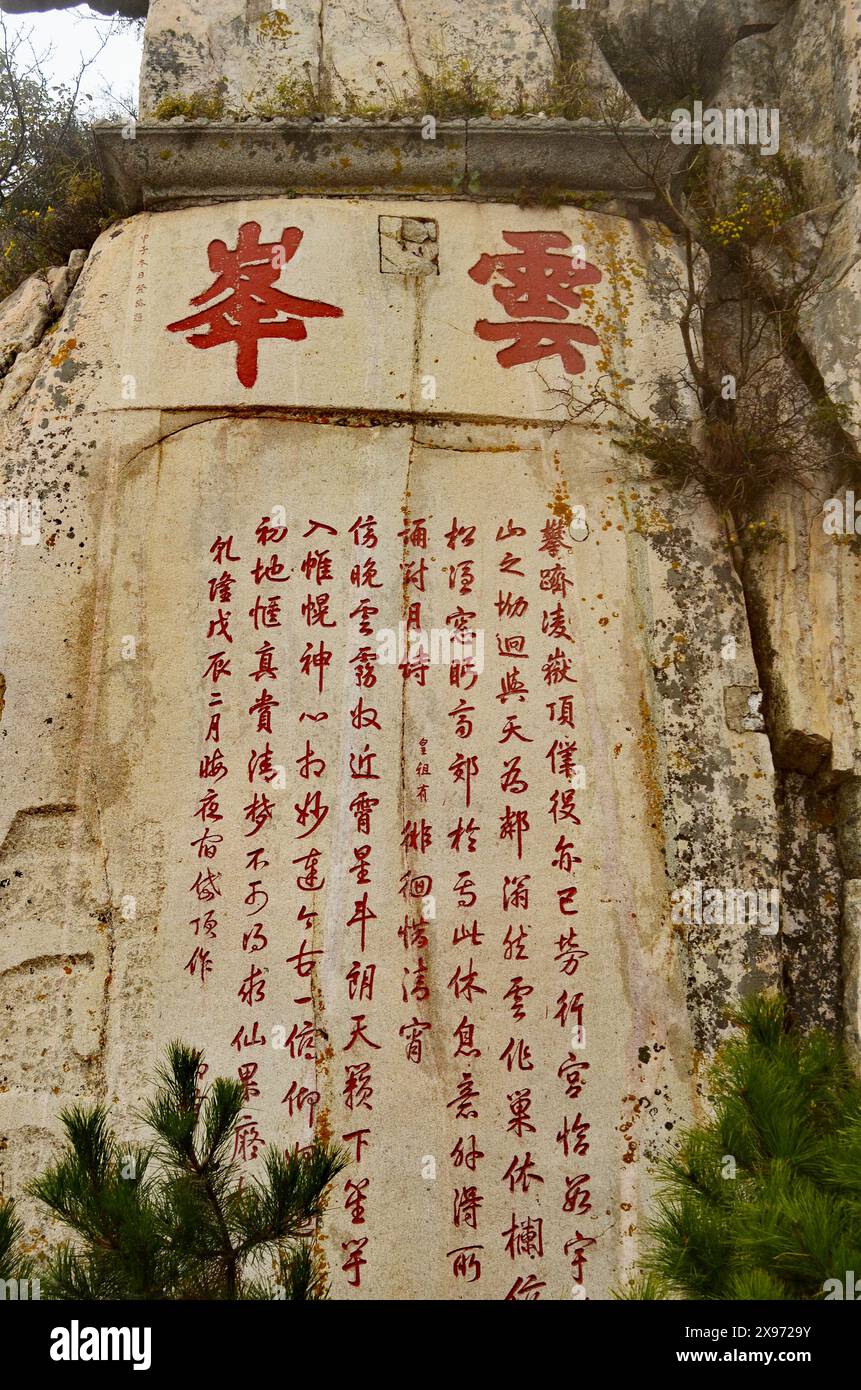 雲峯
攀躋凌嶽頂僕役亦已勞行宮恰數宇
山之坳迥與天為鄰滃然雲作巢依欄俯
松濤窓盼高郊於焉此休息意外得所
誦對月詩皇祖有徘徊惜清宵
傍晚雲霧收近霄星斗朗天籟下笙竽
入帷幌神心相妙達今古一俯仰
初地愜真賞清夢不可得求仙果癡
乾隆戊辰二月晦夜宿岱頂作
alamy
Image ID: 2X9729Y
www.alamy.com